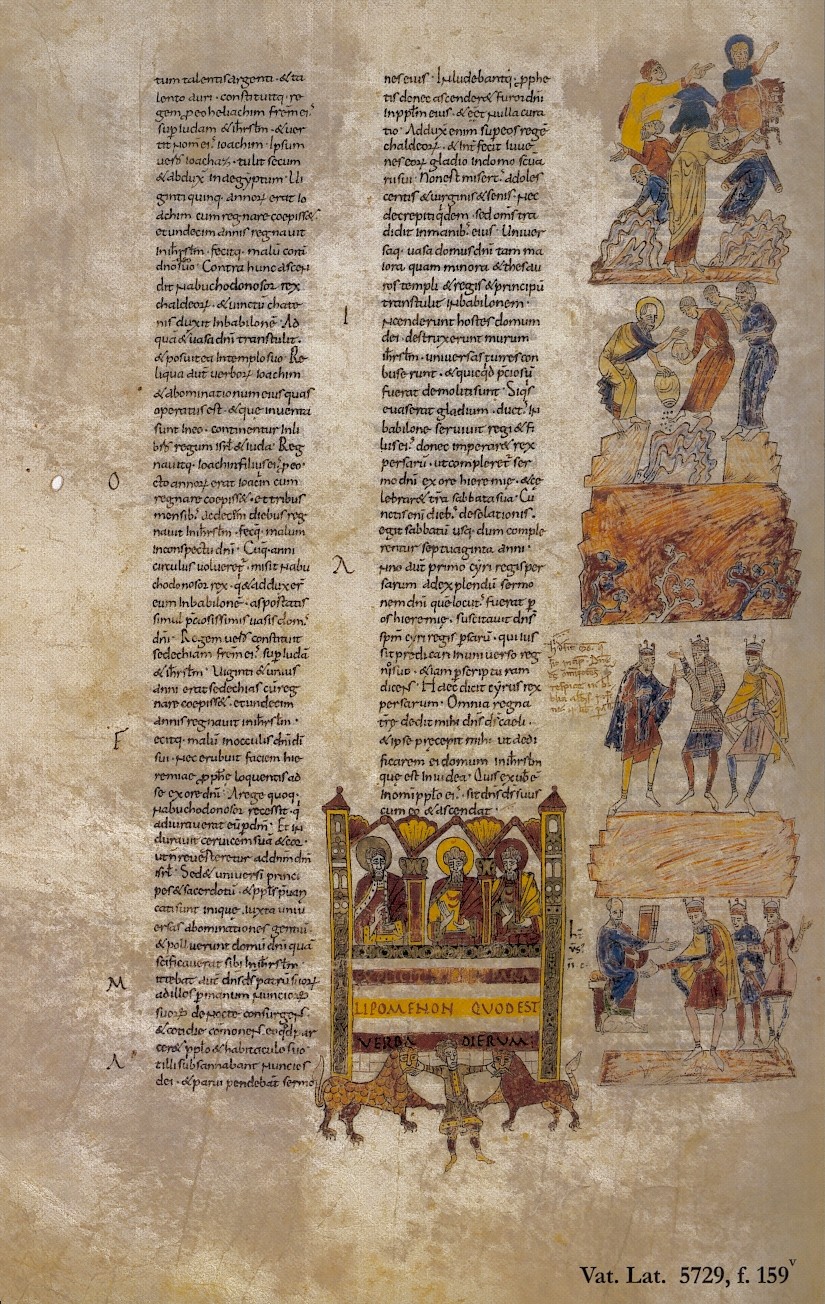 tum talentis argenti · & ta
lento auri · constituitq; re
gem p eo heliachim frem ei'
sup Iudam & ihrslm · & uer
tit nom ei' ioachim · Ipsum
uero ioachaz · tulit secum
& abdux in aegyptum · Ui
ginti quinq; annoꝝ erat io
achim cum regnare coepiss&
et undecim annis regnauit
in ihrslm · fecitq; malū corā
dno suo · Contra hunc ascen
dit nabuchodonosor rex
chaldeoꝝ · & uinctū cathe
nis duxit in babilonē · Ad
qua & uasa dni transtulit ·
& posuit ea in templo suo · Re
liqua aut̄ uerboꝝ ioachim
& abominationum eius quas
operatus est · & que inuenta
sunt in eo · continentur in li
bro regum isrl & iuda · Reg
nauitq; ioachin filius ei' p eo ·
O cto annoꝝ erat ioacin cum
regnare coepiss& · et tribus
mensib; ac decem diebus reg
nauit in ihrslm · fecitq; malum
in conspectu dni · Cūq; anni
circulus uolueret' · misit nabu
chodonosor rex · q & adduxer
eum in babilonē · asportatis
simul p̄ciosissimis uasis dom'
dni · Regem uero constituit
sedechiam frem ei' sup Iudā
& ihrslm · Uiginti & unius
anni erat sedechias cū reg
nare coepiss& · et undecim
annis regnauit in ihrslm ·
F ecitq; malū in oculis dni di
sui · nec erubuit faciem hie
remiae pphe loquentis ad
se ex ore dni · A rege quoq;
nabuchodonosor recessit · q
adiurauerat eū p dm · Et in
durauit ceruicem suā & cor ·
ut n reuerteretur ad dnm dm
isrl · Sed & uniuersi princi
pes & sacerdotū · & ppls p̄uari
cati sunt inique iuxta uniu
ersas abominationes gentiū ·
& polluerunt domū dni quā
scificauerat sibi in ihrslm ·
M ittebat aut dns ds patrū suoꝝ
ad illos p manum nuncioꝝ
suoꝝ de nocte consurgens ·
& cotidie comonens · eo qd par
cer& pplo & habitaculo suo
A t illi subsannabant nuncios
dei · & parui pendebāt sermo
nes eius · Inludebantq; pphe
tis donec ascender& furor dni
in pplm eius · & eet nulla cura
tio · Adduxit enim sup eos regē
chaldeoꝝ · & interfecit iuue
nes eoꝝ gladio in domo scua
rii sui · Non est misert' adoles
centis & uirginis & senis · nec
decrepiti qdem · sed oms tra
didit in manib; eius · Uniuer
saq; uasa domus dni tam ma
iora quam minora & thesau
ros templi & regis & principū
transtulit in babilonem ·
I ncenderunt hostes domum
dei · destruxerunt murum
ihrslm · uniuersas turres con
buserunt · & quicqd p̄ciosū
fuerat demoliti sunt · Siqs
euaserat gladium · duct' in
babilone seruiuit regi & fi
liis ei' · donec imperar& rex
persarū · ut compleret' ser
mo dni ex ore hieremie · & ce
lebrar& tr̄a sabbata sua · Cū
netis eni dieb; desolationis ·
egit sabbatū usq; dum comple
rentur septuaginta anni ·
A nno aut primo cyri regis per
sarum ad explendū sermo
nem dni que locut' fuerat p
os hieremie · suscitauit dns
spm cyri regis p̄sarū · qui ius
sit predicari in uniuerso reg
no suo · etiam p scripturam
dicens · Haec dicit cyrus rex
persarum · Omnia regna
tr̄e dedit mihi dns ds caeli ·
& ipse precepit mihi ut aedi
ficarem ei domum in ihrslm
que est in iudea · Quis ex uobis
in omi pplo ei' · sit dns ds suus
cum eo & ascendat ·
LIPOMENON QUOD EST
VERBA DIERUM:
Vat. Lat. 5729, f. 159v